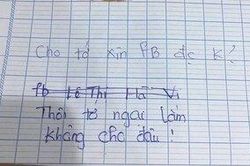 Cho tớ xin FB đc K?
fb Lê Thị Hà Vi
Thôi tớ ngại lắm
không cho đâu!